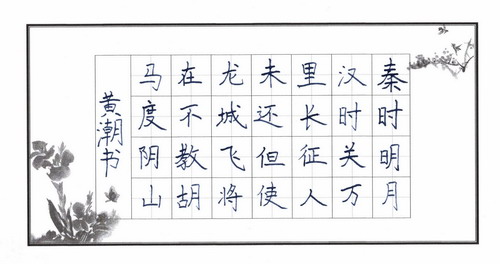 秦时明月
汉时关万
里长征人
未还但使
龙城飞将
在不教胡
马度阴山
黄潮书